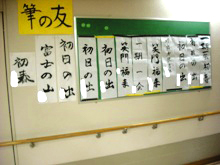 筆の友
笑門福来
一期一会
笑門福来
初日の出
初日の出
初日の出
富士の山
初春